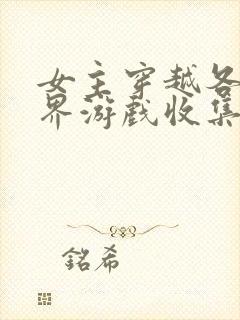 女主穿越各
界游戏收集
銘希